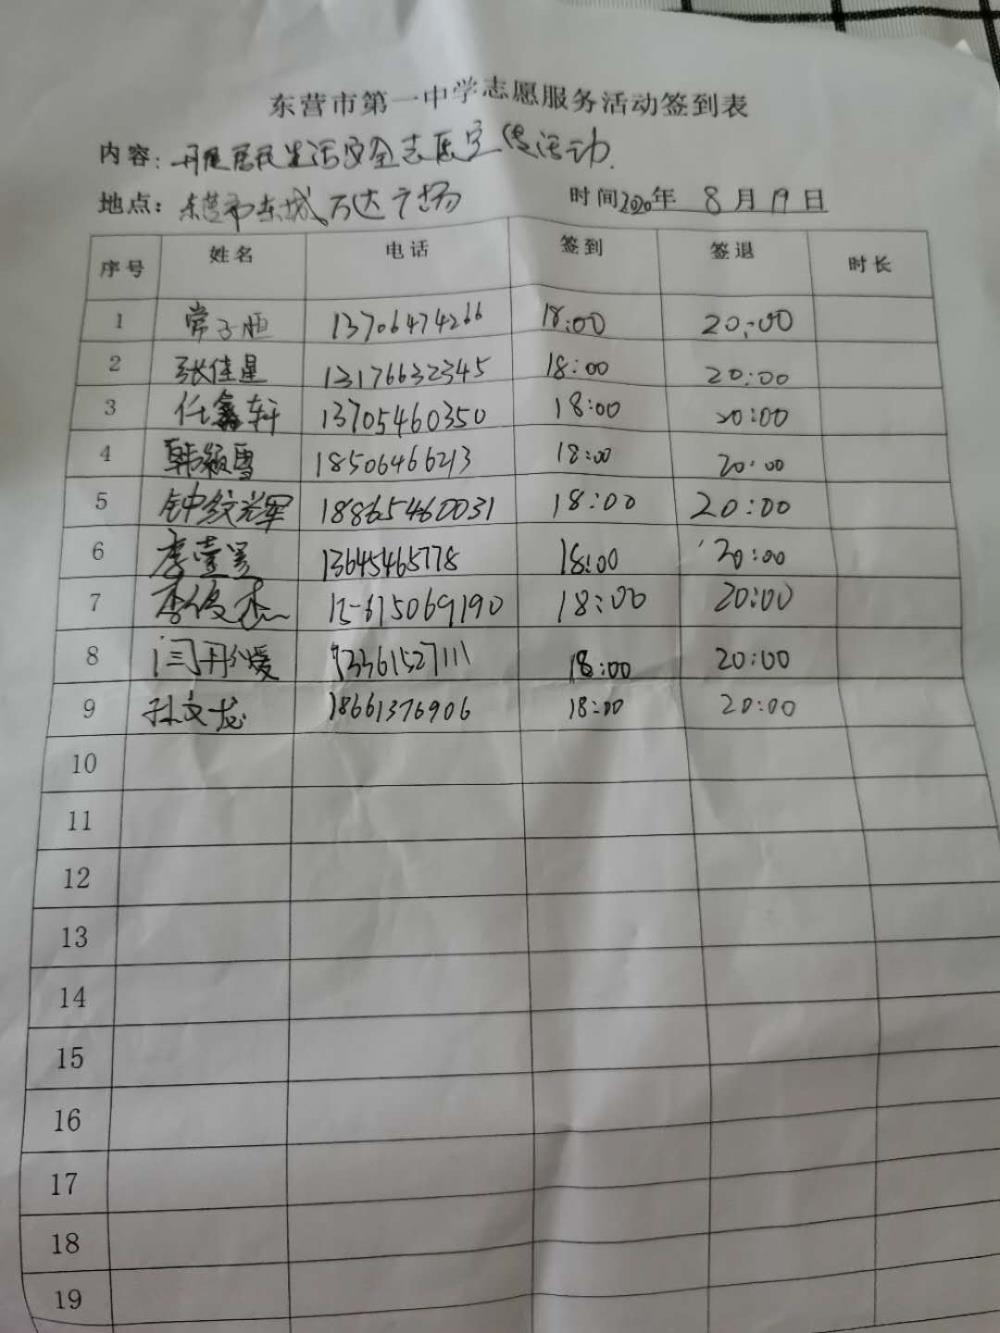 东营市第一中学志愿服务活动签到表
内容: 开展居民生活安全志愿宣传活动.
地点: 东营市东城万达广场 时间2020年 8月19日
序号 姓名 电话 签到 签退 时长
1 常子恒 13706474266 18:00 20:00
2 张佳星 13176632345 18:00 20:00
3 任鑫轩 13705460350 18:00 20:00
4 韩颖雪 18506466213 18:00 20:00
5 钟纹光军 18865460031 18:00 20:00
6 13645465778 18:00 20:00
7 李俊杰 15615069190 18:00 20:00
8 13361527111 18:00 20:00
9 孙文龙 18661376906 18:00 20:00
10
11
12
13
14
15
16
17
18
19